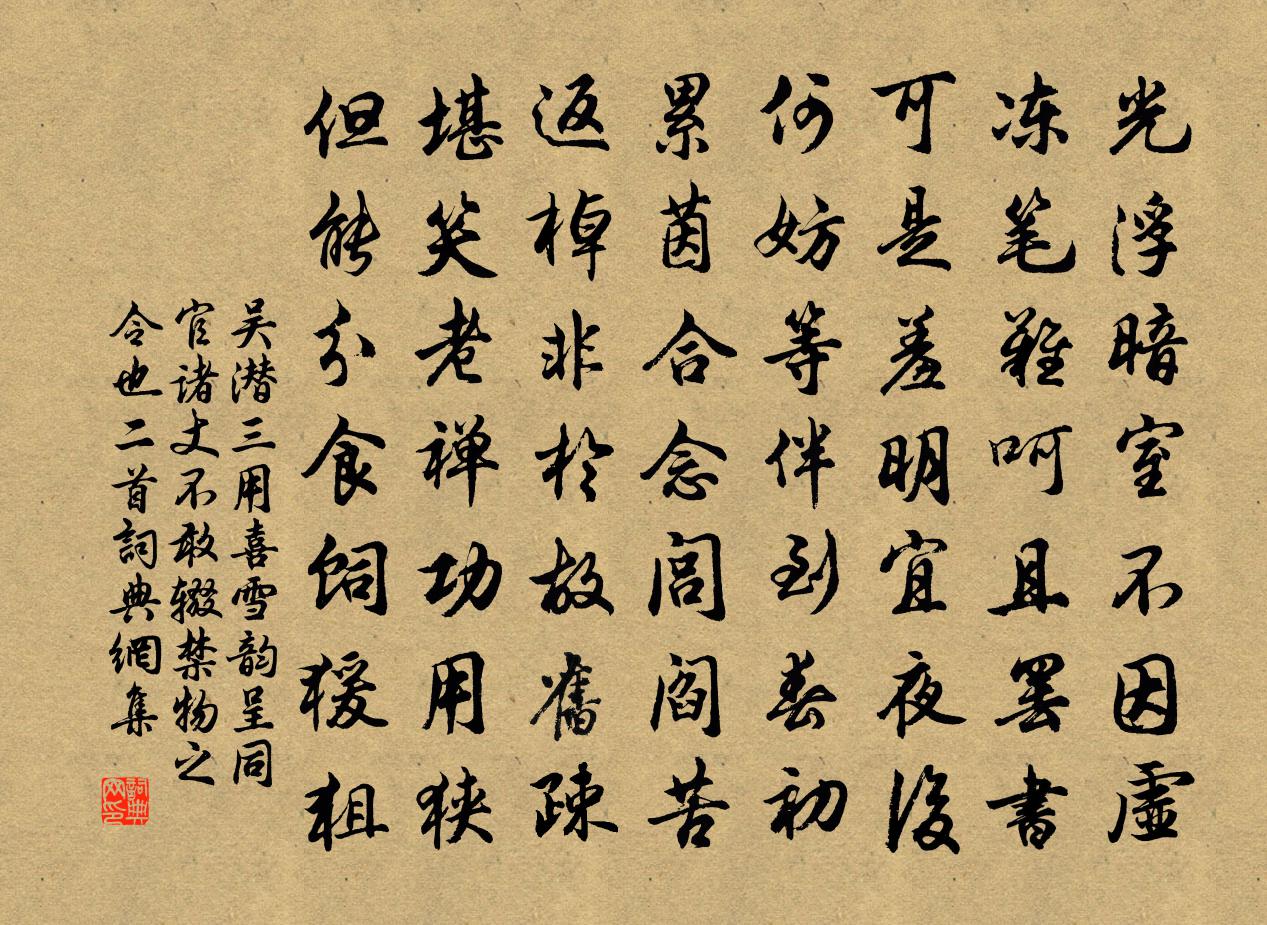 光浮暗室不因虚
冻笔难呵且罢書
可是羞明宜夜後
何妨等伴到春初
累茵合念闾阎苦
返棹非於故舊疎
堪笑老禅功用狭
但能分食饲猨狙
吴潜三用喜雪韵呈同
官诸丈不敢辍禁物之
令也二首詞典網集
詞典网印